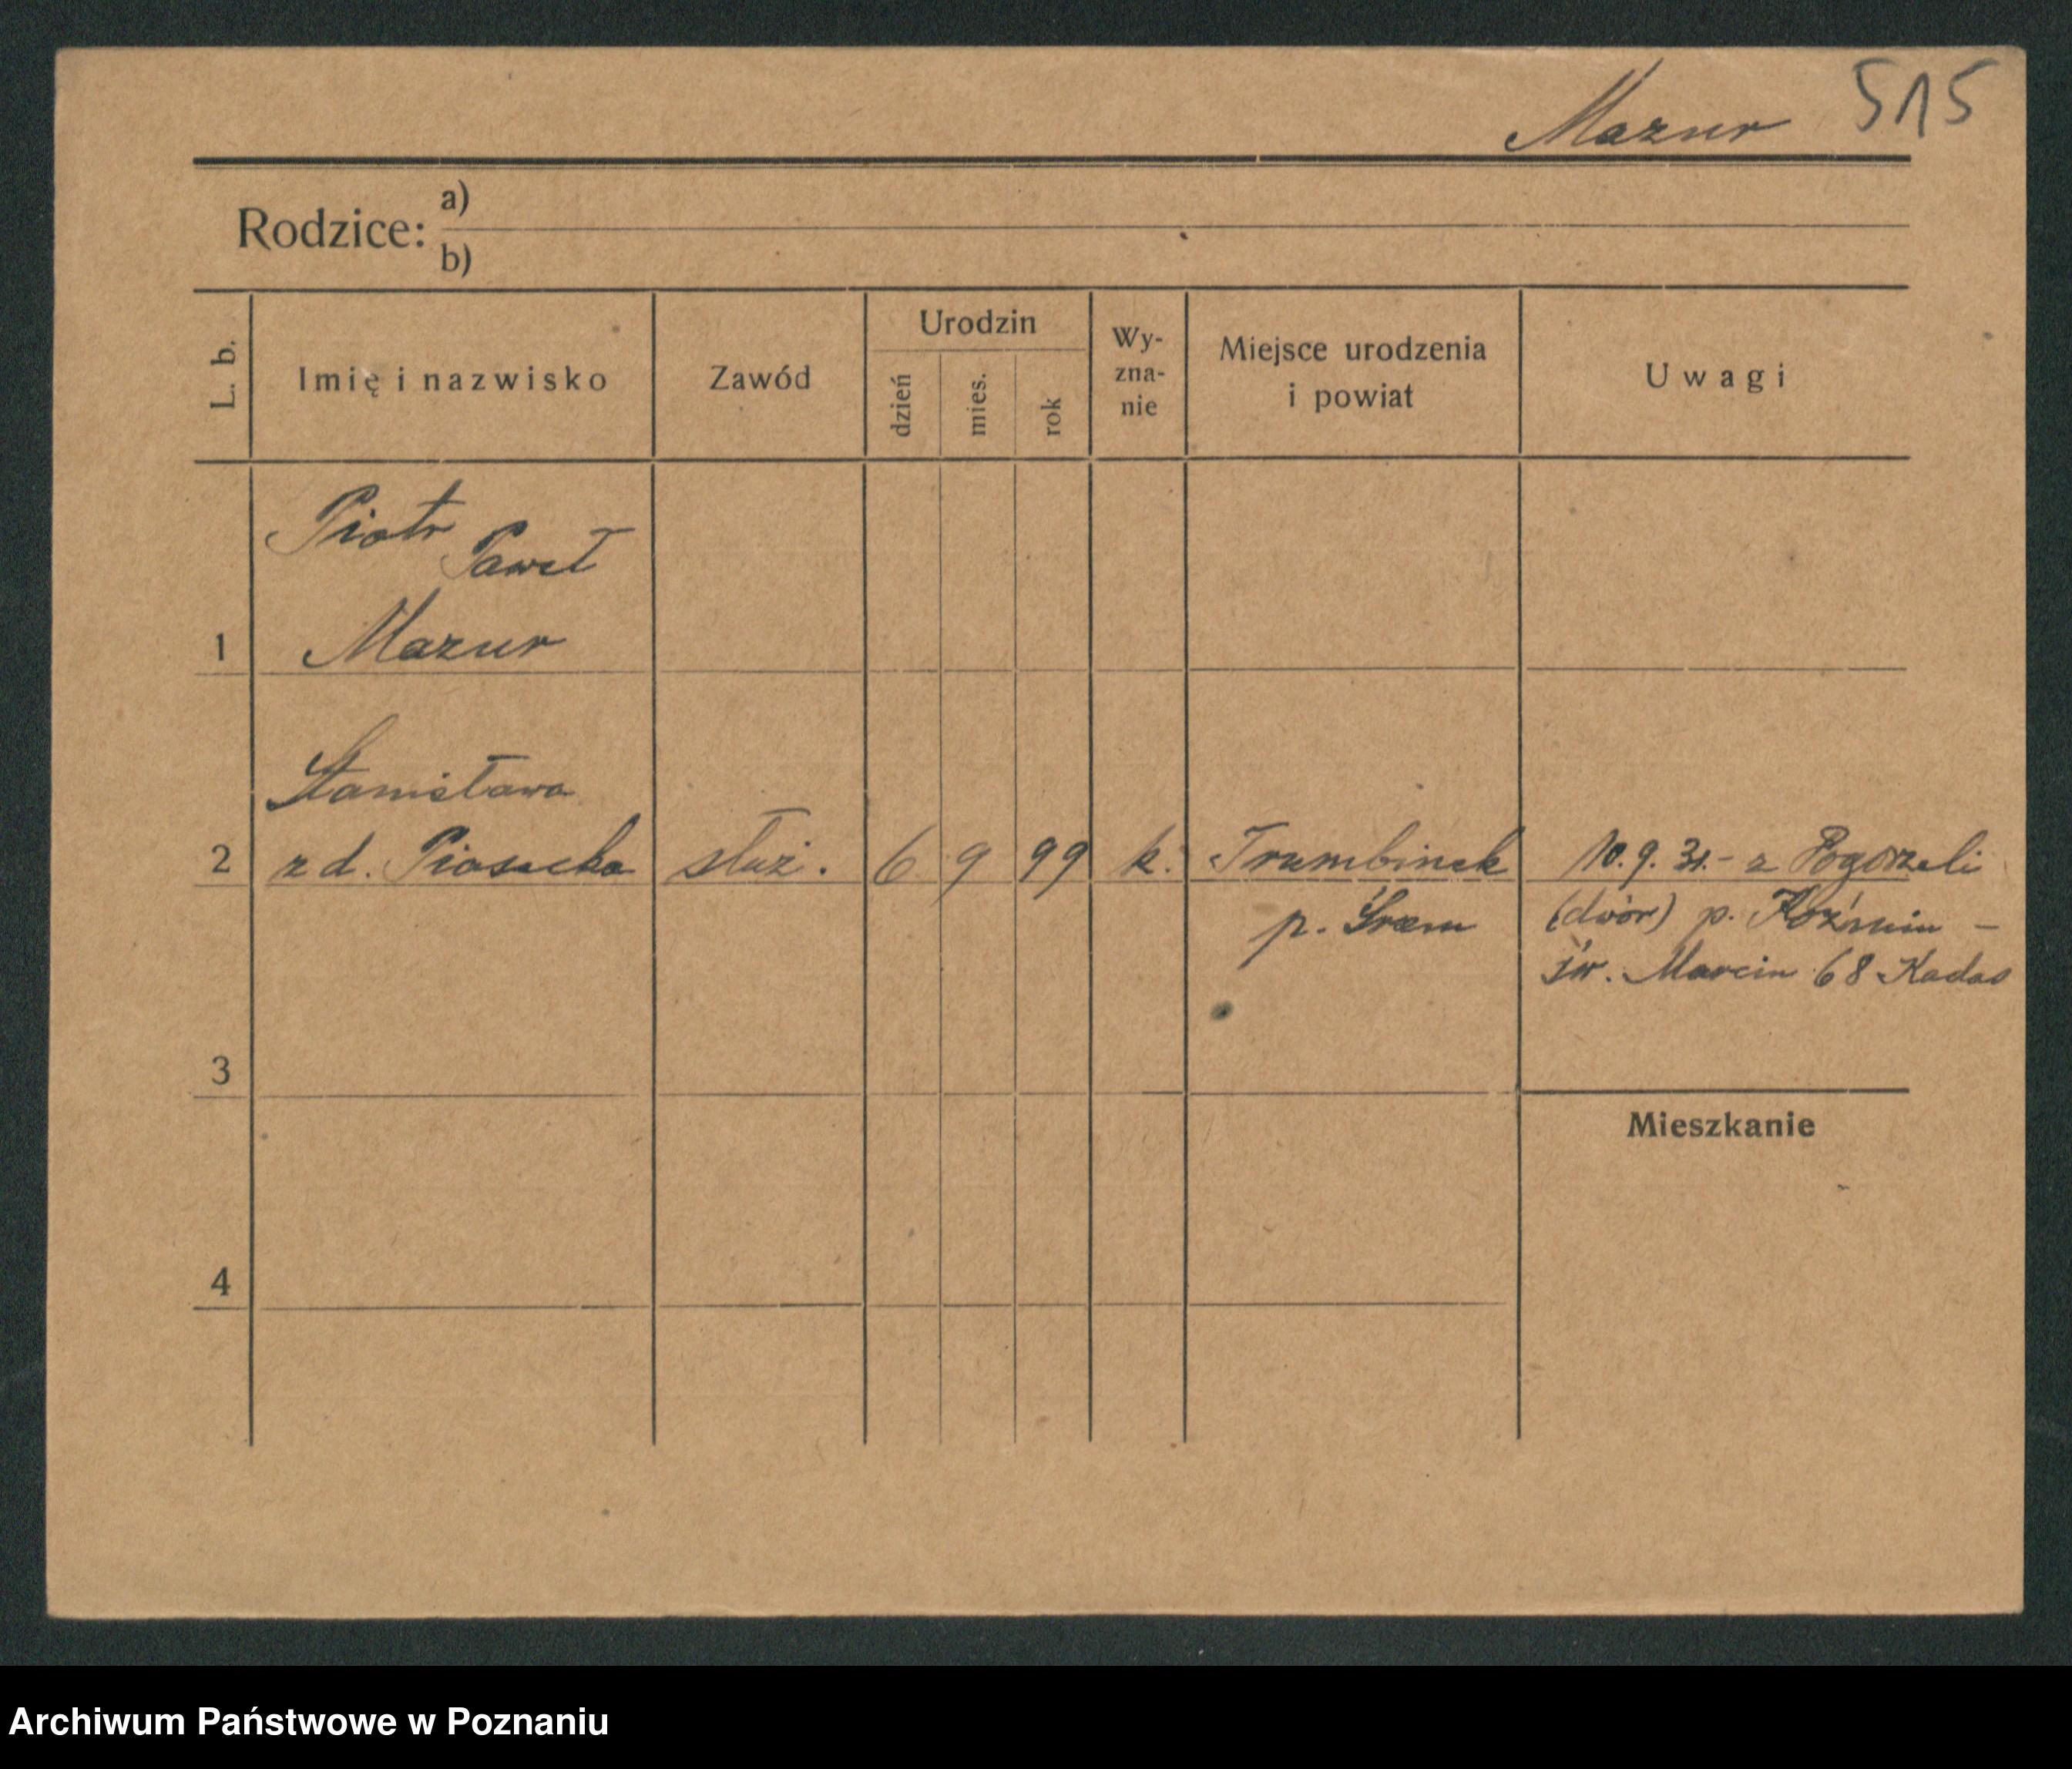 Mazur 515
Rodzice: a)
b)
L. b.
Imię i nazwisko
Zawód
Urodzin
dzień
mies.
rok
Wy-
zna-
nie
Miejsce urodzenia
i powiat
Uwagi
1
Piotr
Paweł
Mazur
2
Stanisława
z d. Piosecka
służ.
6 9 99
k.
Trumbinek
p. Śrem
10.9.31. - z Pogorzeli
(dwór) p. Koźmin -
św. Marcin 68 Kadas
3
Mieszkanie
4
Archiwum Państwowe w Poznaniu